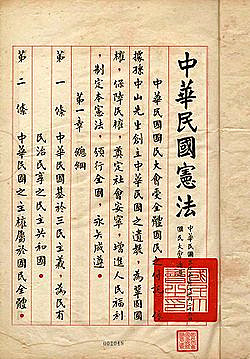 中華民國憲法
中華民國
國民大會
中華民國國民大會受全體國民之付託,依
據孫中山先生創立中華民國之遺教,為鞏固國
權,保障民權,奠定社會安寧,增進人民福利
,制定本憲法,頒行全國,永矢咸遵。
第一章 總綱
第一條 中華民國基於三民主義,為民有
民治民享之民主共和國。
第二條 中華民國之主權屬於國民全體。